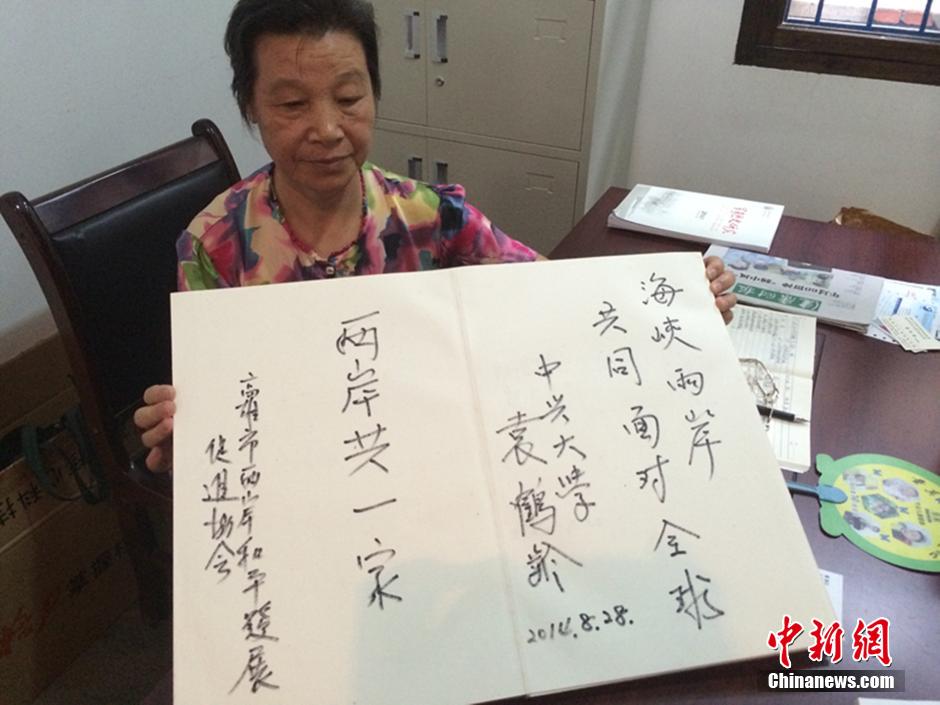 海峡两岸
共同面对全球
中兴大学
袁鹤龄
2014.8.28.
两岸共一家
高雄市两岸和平发展
促进协会
中新网
Chinanews.com